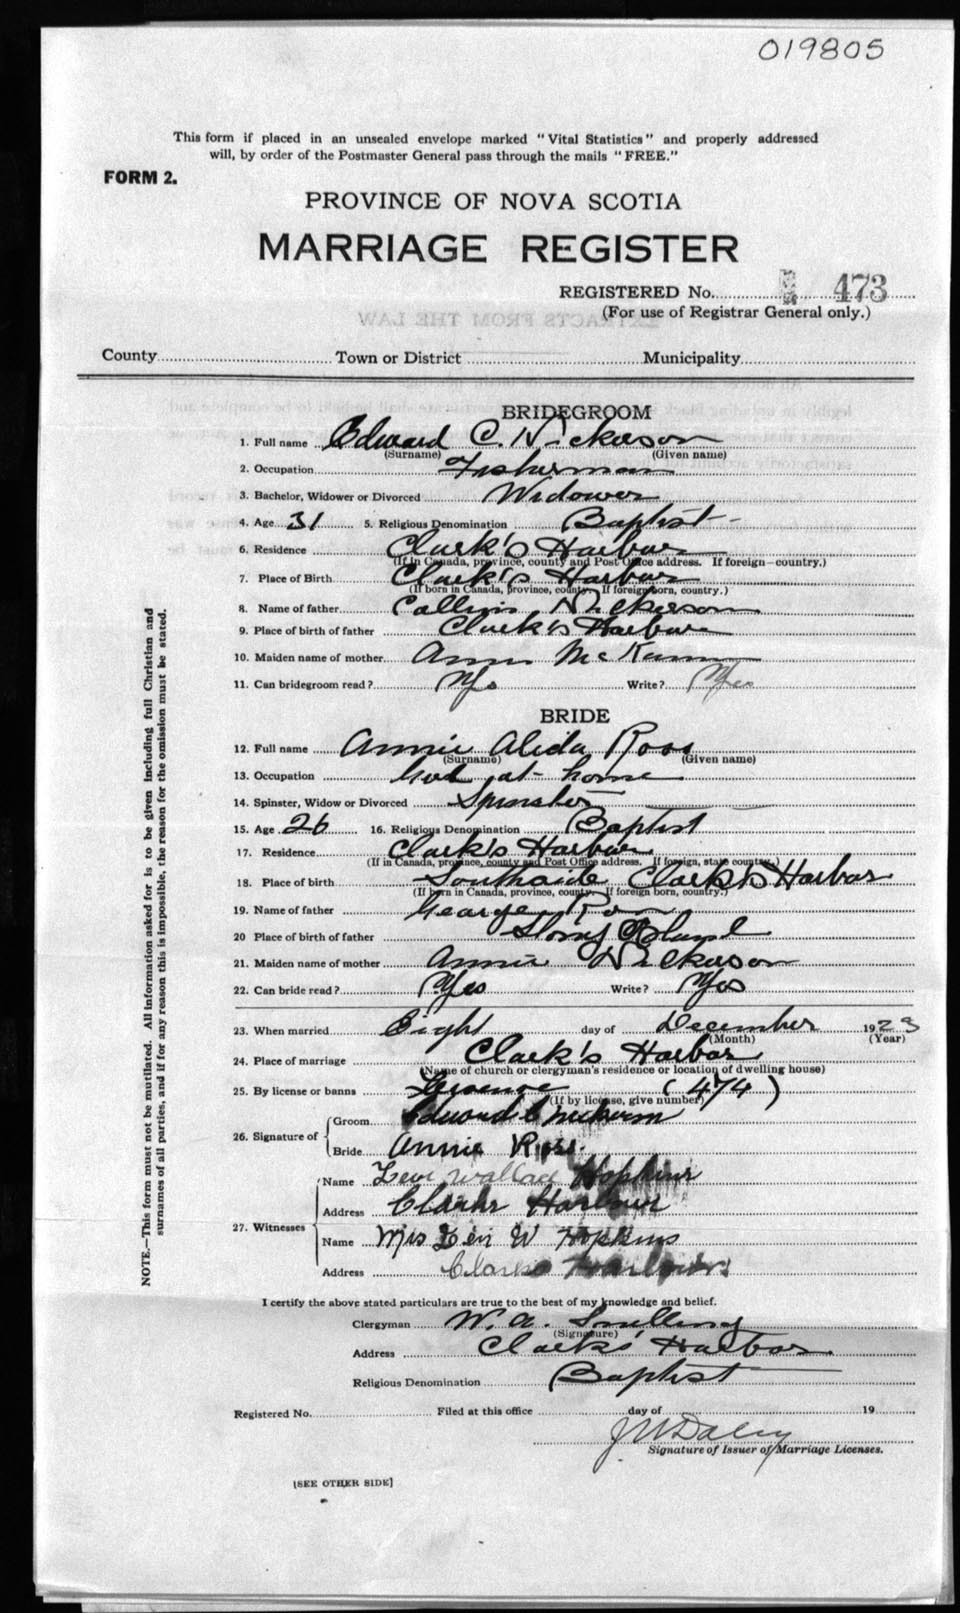 019805
This form if placed in an unsealed envelope marked "Vital Statistics" and properly addressed
will, by order of the Postmaster General pass through the mails "FREE."
FORM 2.
PROVINCE OF NOVA SCOTIA
MARRIAGE REGISTER
REGISTERED No. 473
(For use of Registrar General only.)
EXTRACTS FROM THE LAW
County Town or District Municipality
BRIDEGROOM
1. Full name Edward C. Nickerson
(Surname) (Given name)
2. Occupation Fisherman
3. Bachelor, Widower or Divorced Widower
4. Age 31 5. Religious Denomination Baptist
6. Residence Clark's Harbor
(If in Canada, province, county and Post Office address. If foreign—country.)
7. Place of Birth Clark's Harbor
(If born in Canada, province, county. If foreign born, country.)
8. Name of father Nickerson
9. Place of birth of father Clark's Harbor
10. Maiden name of mother
11. Can bridegroom read? Yes Write? Yes
BRIDE
12. Full name Annie Alida Ross
(Surname) (Given name)
13. Occupation at home
14. Spinster, Widow or Divorced Spinster
15. Age 26 16. Religious Denomination Baptist
17. Residence Clark's Harbor
(If in Canada, province, county and Post Office address. If foreign, state country.)
18. Place of birth Southside Clark's Harbor
(If born in Canada, province, county. If foreign born, country.)
19. Name of father George Ross
20 Place of birth of father Stony Island
21. Maiden name of mother Annie Nickerson
22. Can bride read? Yes Write? Yes
23. When married Eight day of December 1923
(Month) (Year)
24. Place of marriage Clark's Harbor
(Name of church or clergyman's residence or location of dwelling house)
25. By license or banns (474)
(If by license, give number)
26. Signature of Groom Edward C Nickerson
Bride Annie Ross.
27. Witnesses Name Levi Wallace Hopkins
Address Clarks Harbour
Name Mrs Levi W Hopkins
Address Clarks Harbour
I certify the above stated particulars are true to the best of my knowledge and belief.
Clergyman W. A. Snelling
(Signature)
Address Clark's Harbor
Religious Denomination Baptist
Registered No. Filed at this office day of 19
Signature of Issuer of Marriage Licenses.
[SEE OTHER SIDE]
NOTE.—This form must not be mutilated. All information asked for is to be given including full Christian and
surnames of all parties, and if for any reason this is impossible, the reason for the omission must be stated.